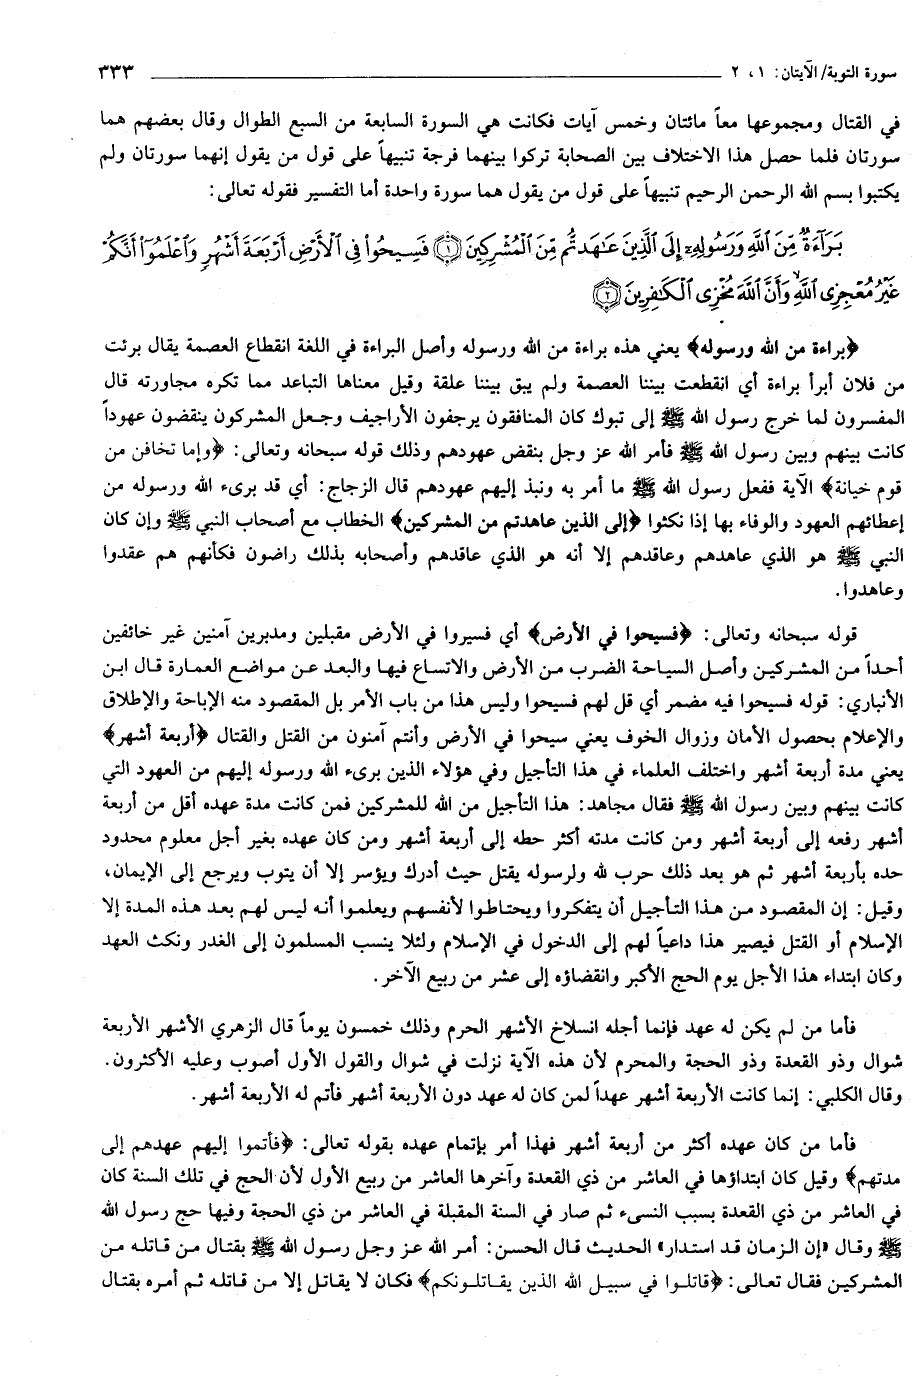 سورة التوبة/ الآيتان: ١، ٢ ٣٣٣
في القتال ومجموعها معاً مائتان وخمس آيات فكانت هي السورة السابعة من السبع الطوال وقال بعضهم هما
سورتان فلما حصل هذا الاختلاف بين الصحابة تركوا بينهما فرجة تنبيهاً على قول من يقول إنهما سورتان ولم
يكتبوا بسم الله الرحمن الرحيم تنبيهاً على قول من يقول هما سورة واحدة أما التفسير فقوله تعالى:
بَرَآءَةٌ مِّنَ ٱللَّهِ وَرَسُولِهِۦٓ إِلَى ٱلَّذِينَ عَـٰهَدتُّم مِّنَ ٱلْمُشْرِكِينَ ﴿١﴾ فَسِيحُوا۟ فِى ٱلْأَرْضِ أَرْبَعَةَ أَشْهُرٍ وَٱعْلَمُوٓا۟ أَنَّكُمْ
غَيْرُ مُعْجِزِى ٱللَّهِ ۙ وَأَنَّ ٱللَّهَ مُخْزِى ٱلْكَـٰفِرِينَ ﴿٢﴾
﴿براءة من الله ورسوله﴾ يعني هذه براءة من الله ورسوله وأصل البراءة في اللغة انقطاع العصمة يقال برئت
من فلان أبرأ براءة أي انقطعت بيننا العصمة ولم يبق بيننا علقة وقيل معناها التباعد مما تكره مجاورته قال
المفسرون لما خرج رسول الله ﷺ إلى تبوك كان المنافقون يرجفون الأراجيف وجعل المشركون ينقضون عهوداً
كانت بينهم وبين رسول الله ﷺ فأمر الله عز وجل بنقض عهودهم وذلك قوله سبحانه وتعالى: ﴿وإما تخافن من
قوم خيانة﴾ الآية ففعل رسول الله ﷺ ما أمر به ونبذ إليهم عهودهم قال الزجاج: أي قد برىء الله ورسوله من
إعطائهم العهود والوفاء بها إذا نكثوا ﴿إلى الذين عاهدتم من المشركين﴾ الخطاب مع أصحاب النبي ﷺ وإن كان
النبي ﷺ هو الذي عاهدهم وعاقدهم إلا أنه هو الذي عاقدهم وأصحابه بذلك راضون فكأنهم هم عقدوا
وعاهدوا.
قوله سبحانه وتعالى: ﴿فسيحوا في الأرض﴾ أي فسيروا في الأرض مقبلين ومدبرين آمنين غير خائفين
أحداً من المشركين وأصل السياحة الضرب من الأرض والاتساع فيها والبعد عن مواضع العمارة قال ابن
الأنباري: قوله فسيحوا فيه مضمر أي قل لهم فسيحوا وليس هذا من باب الأمر بل المقصود منه الإباحة والإطلاق
والإعلام بحصول الأمان وزوال الخوف يعني سيحوا في الأرض وأنتم آمنون من القتل والقتال ﴿أربعة أشهر﴾
يعني مدة أربعة أشهر واختلف العلماء في هذا التأجيل وفي هؤلاء الذين برىء الله ورسوله إليهم من العهود التي
كانت بينهم وبين رسول الله ﷺ فقال مجاهد: هذا التأجيل من الله للمشركين فمن كانت مدة عهده أقل من أربعة
أشهر رفعه إلى أربعة أشهر ومن كانت مدته أكثر حطه إلى أربعة أشهر ومن كان عهده بغير أجل معلوم محدود
حده بأربعة أشهر ثم هو بعد ذلك حرب لله ولرسوله يقتل حيث أدرك ويؤسر إلا أن يتوب ويرجع إلى الإيمان،
وقيل: إن المقصود من هذا التأجيل أن يتفكروا ويحتاطوا لأنفسهم ويعلموا أنه ليس لهم بعد هذه المدة إلا
الإسلام أو القتل فيصير هذا داعياً لهم إلى الدخول في الإسلام ولئلا ينسب المسلمون إلى الغدر ونكث العهد
وكان ابتداء هذا الأجل يوم الحج الأكبر وانقضاؤه إلى عشر من ربيع الآخر.
فأما من لم يكن له عهد فإنما أجله انسلاخ الأشهر الحرم وذلك خمسون يوماً قال الزهري الأشهر الأربعة
شوال وذو القعدة وذو الحجة والمحرم لأن هذه الآية نزلت في شوال والقول الأول أصوب وعليه الأكثرون.
وقال الكلبي: إنما كانت الأربعة أشهر عهداً لمن كان له عهد دون الأربعة أشهر فأتم له الأربعة أشهر.
فأما من كان عهده أكثر من أربعة أشهر فهذا أمر بإتمام عهده بقوله تعالى: ﴿فأتموا إليهم عهدهم إلى
مدتهم﴾ وقيل كان ابتداؤها في العاشر من ذي القعدة وآخرها العاشر من ربيع الأول لأن الحج في تلك السنة كان
في العاشر من ذي القعدة بسبب النسيء ثم صار في السنة المقبلة في العاشر من ذي الحجة وفيها حج رسول الله
ﷺ وقال «إن الزمان قد استدار» الحديث قال الحسن: أمر الله عز وجل رسول الله ﷺ بقتال من قاتله من
المشركين فقال تعالى: ﴿قاتلوا في سبيل الله الذين يقاتلونكم﴾ فكان لا يقاتل إلا من قاتله ثم أمره بقتال